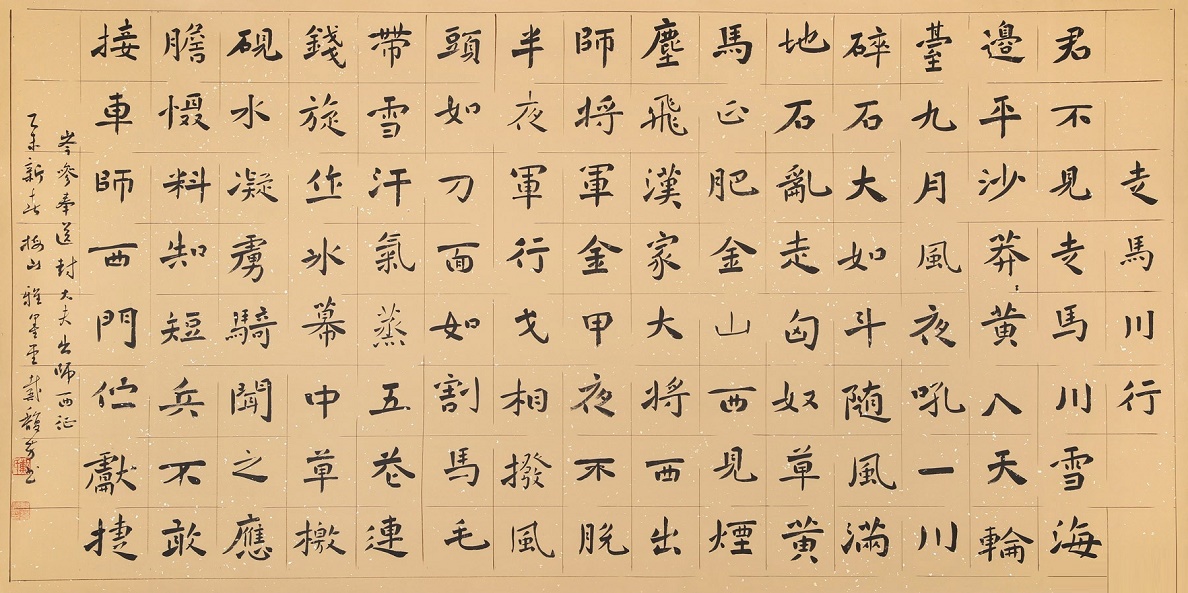 走馬川行
君不見走馬川雪海
邊平沙莽〻黃入天輪
臺九月風夜吼一川
碎石大如斗随風滿
地石亂走匈奴草黃
馬正肥金山西見煙
塵飛漢家大将西出
師将軍金甲夜不脫
半夜軍行戈相撥風
頭如刀面如割馬毛
帶雪汗氣蒸五花連
錢旋作冰幕中草檄
硯水凝虜騎聞之應
膽慑料知短兵不敢
接車師西門伫獻捷
岑參奉送封大夫出師西征
乙未新春梅山雅墨堂戴